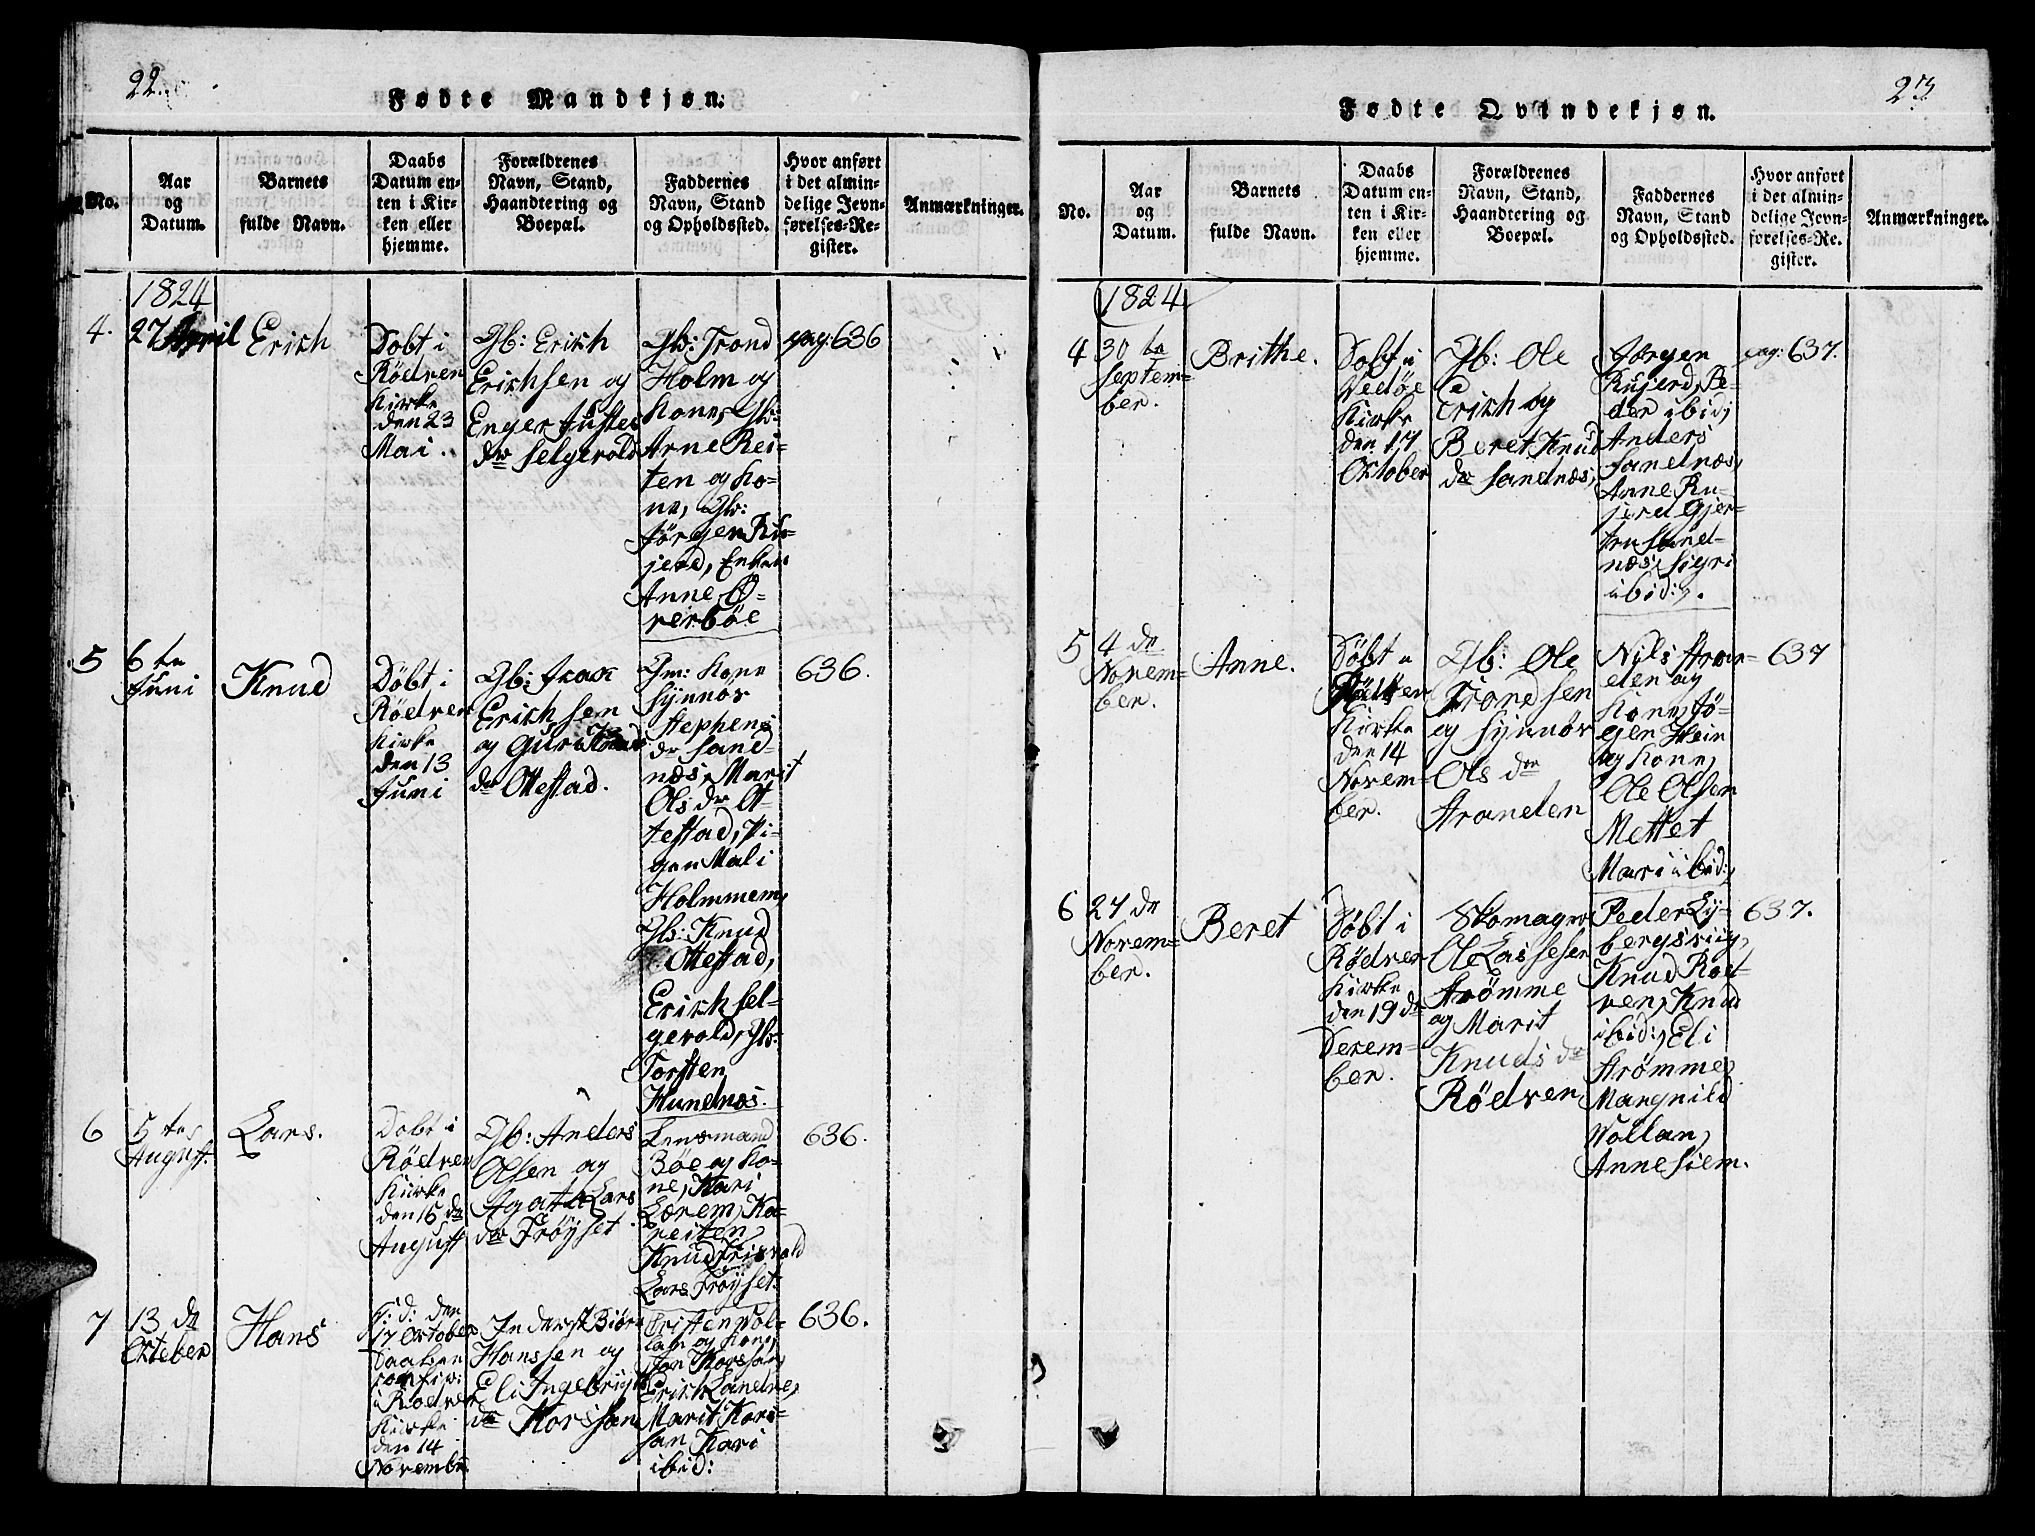 22.
Fødte Mandkjøn.
No.
Aar
og
Datum.
Barnets
fulde Navn.
Daabs
Datum en-
ten i Kir-
ken eller
hjemme.
Forældrenes
Navn, Stand,
Haandtering og
Boepæl.
Faddernes
Navn, Stand
og Opholdssted.
Hvor anført
i det almin-
delige Jevn-
førelses-Re-
gister.
Anmærkninger.
1824
4.
27 April
Erich
Dobt i
Rödven
Kirke
den 23
Mai.
Gb: Erich
Erichsen og
Enger Justes
dr Selgerold
Gb: Trond
Holm og
Kone, Gb:
Arne Rei-
ten og Ko-
ne, Gb:
Jörgen Ru-
jerd, Enken
Anne Ö-
verböe
pag: 636
5
6 te
Juni
Knud
Döbt i
Rödven
Kirke
den 13
Juni
Gb: Isac
Erichsen
og Guri
dr Ottestad.
Gm: Kone
Synnöv
Stephens
dr Sand-
næs, Marit
Ols dr Ot-
testad, Pi-
gen Mali
Holmmem,
Gb: Knud
Ottestad,
Erich Sel-
gerold, Gb:
Torsten
Hundnæs.
636.
6
5 te
August.
Lars.
Dobt i
Rödven
Kirke
den 15 de
August
Gb: Anders
Olsen og
Agata Lars
dr Fröyset
Lensmand
Böe og Ko-
ne, Kari
Lærem, Ka-
reiten,
Knud
Lars Fröyset.
636.
7
13 de
Oktober
Hans
H: d: den
17 Oktober
Daaben
confir:
i Rödven
Kirke
den 14
November
Inderst Biörn
Hanssen og
Eli Ingebrigts
dr Korssan
Cristen Vol-
lan og Kone,
Jon Korssan,
Erich Landre,
Marit Kors-
san Kari
ibid:
636.
23
Fødte Qvindekjøn.
No.
Aar
og
Datum.
Barnets
fulde Navn.
Daabs
Datum en-
ten i Kir-
ken eller
hjemme.
Forældrenes
Navn, Stand,
Haandtering og
Boepæl.
Faddernes
Navn, Stand
og Opholdssted.
Hvor anført
i det almin-
delige Jevn-
førelses-Re.
gister.
Anmærkninger.
1824
4
30 te
Septem-
ber.
Brithe.
Dobt i
Vedöe
Kirke
den 17
Oktober
Gb: Ole
Erich og
Beret Knud
dr Sandnæs,
Jørgen
Rujerd, Pe-
der ibid,
Anders
Sandnæs,
Anne Ru-
jerd Gjer-
tru Sand-
næs, Sigri
ibid:.
pag: 637.
5
4 de
Novem-
ber.
Anne.
Döbt i
Rödven
Kirke
den 14
Novem-
ber.
Gb: Ole
Trondsen
og Synnöv
Ols dr
Stranden
Nils Stran-
den og
Kone, Jö-
gen Hein
og Kone,
Ole Olsen
Mettet
Mari ibid:,
637
6
27 de
Novem-
ber.
Beret
Döbt i
Rödven
Kirke
den 19 de
Decem-
ber.
Skomager
Ole Lassesen
Strömme
og Marit
Knuds dr
Rödven
Peder Ly-
bergsviig,
Knud Röd-
ven, Knud
ibid:, Eli
Strömme,
Magnild
Vollan,
Anne Siem.
637.